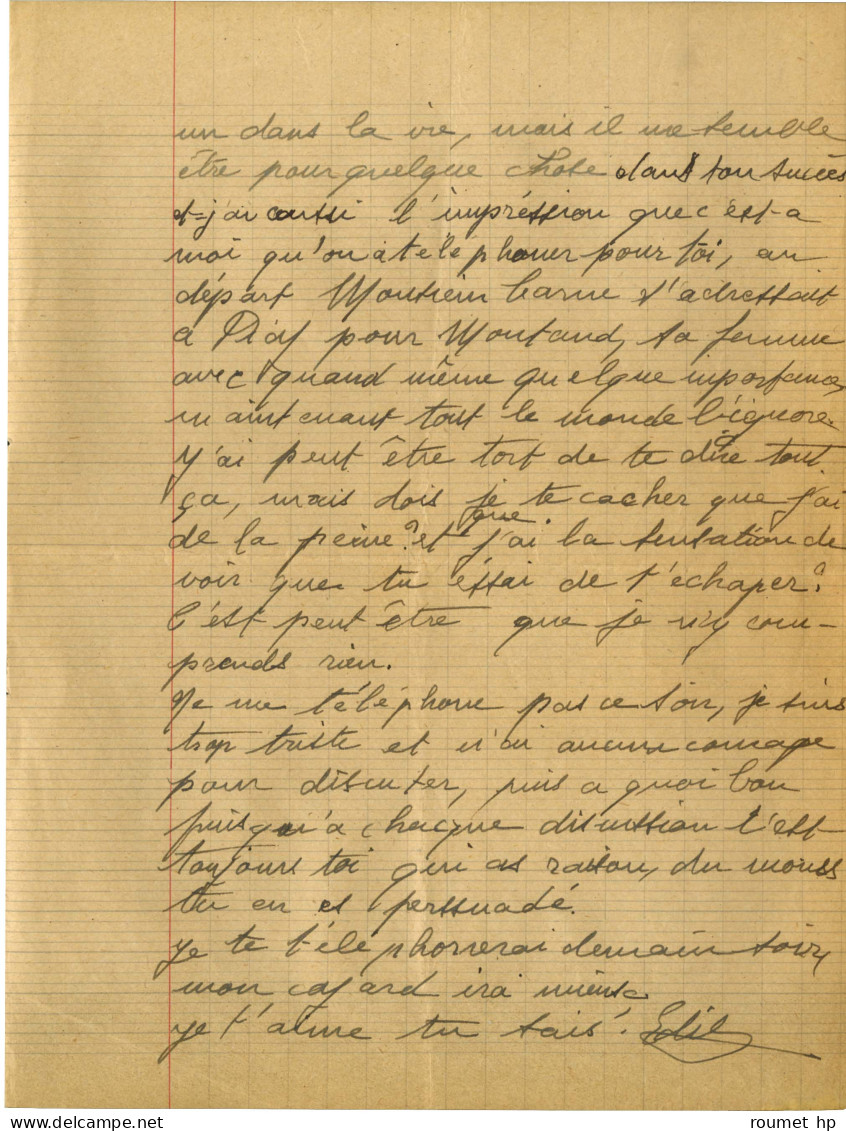 un dans la vie, mais il me semble
être pour quelque chose dans ton succès
et j'ai aussi l'impréssion que c'est a
moi qu'on a téléphoner pour toi, au
départ Monsieur Carné s'adressait
a Piaf pour Montand, sa femme
avec quand même quelque importance,
maintenant tout le monde l'ignore.
J'ai peut être tort de te dire tout
ça, mais dois je te cacher que j'ai
de la peine? et que j'ai la sensation de
voir que tu éssai de t'échaper?
C'est peut être que je n'y com-
prends rien.
Ne me téléphone pas ce soir, je suis
trop triste et n'ai aucun courage
pour discuter, puis a quoi bon
puisqu'a chaque discussion c'est
toujours toi qui as raison, du moins
tu en es perssuadé.
Je te téléphonerai demain soir,
mon cafard ira mieux
je t'aime tu sais! Edit
roumet hp